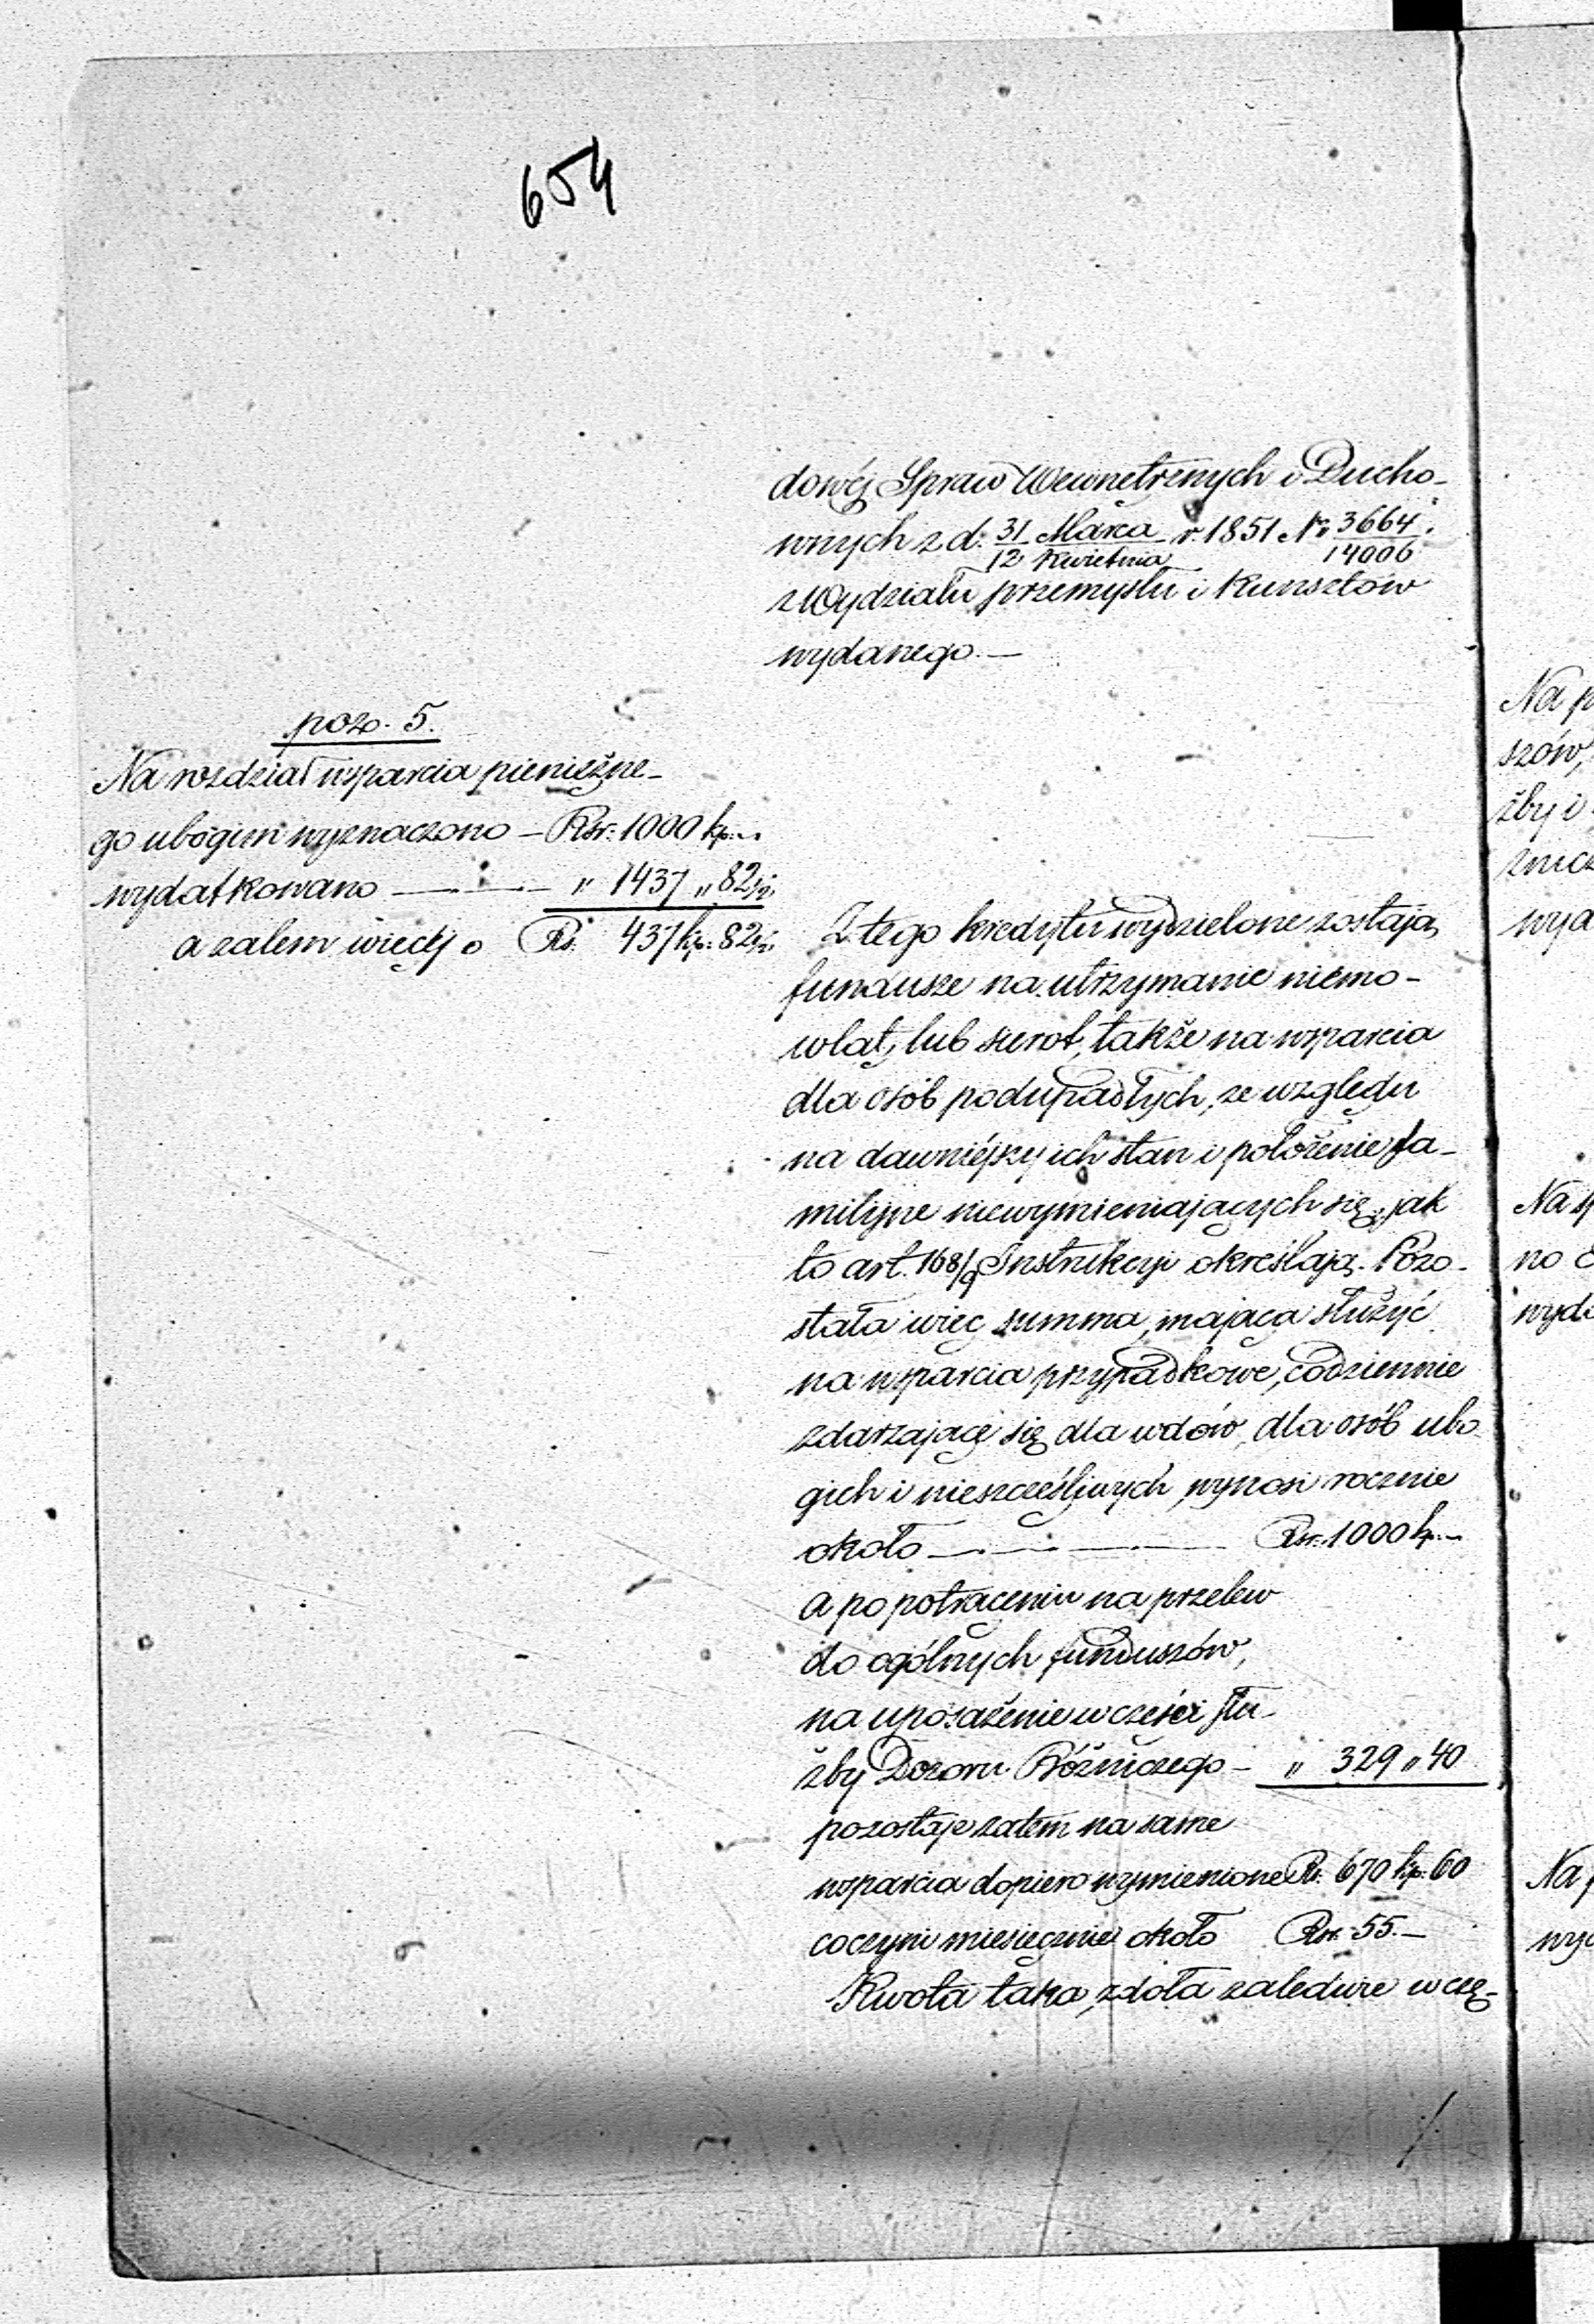 654
dowéj Spraw Wewnętrznych i Ducho-
wnych z d. 31 Marca / 12 Kwietnia r. 1851 No 3664 / 14006.
z Wydziału przemysłu i Kunsztów
wydanego. —
poz. 5.
Na rozdział wsparcia pienięzne-
go ubogim wyznaczono — Rsr: 1000 kp. —
wydatkowano — " 1437 " 82½
a zatem więcéj o Rs. 437 kp: 82½
Z tego kredytu wydzielone zostają
fundusze na utrzymanie niemo-
wląt, lub sierot, także na wsparcia
dla osób podupadłych, ze względu
na dawniéjszy ich stan i położenie fa-
milijne niewymieniających się, jak
to art. 168/9 Instrukcyi określają. Pozo-
stała więc summa, mająca służyć
na wsparcia przypadkowe, codziennie
zdarzające się dla wdów, dla osób ubo
gich i nieszczęśliwych, wynosi rocznie
około — Rsr: 1000 kp. —
a po potrąceniu na przelew
do ogólnych funduszów,
na uposażenie w części słu-
żby Dozoru Bóżniczego — " 329 " 40
pozostaje zatem na same
wsparcia dopiero wymienione Rs. 670 kp. 60
co czyni miesięcznie około Rsr. 55. —
Kwota taka, zdoła zaledwie w czę-
Na
szów,
żby i
zwyd
Na
no
wyd
Na